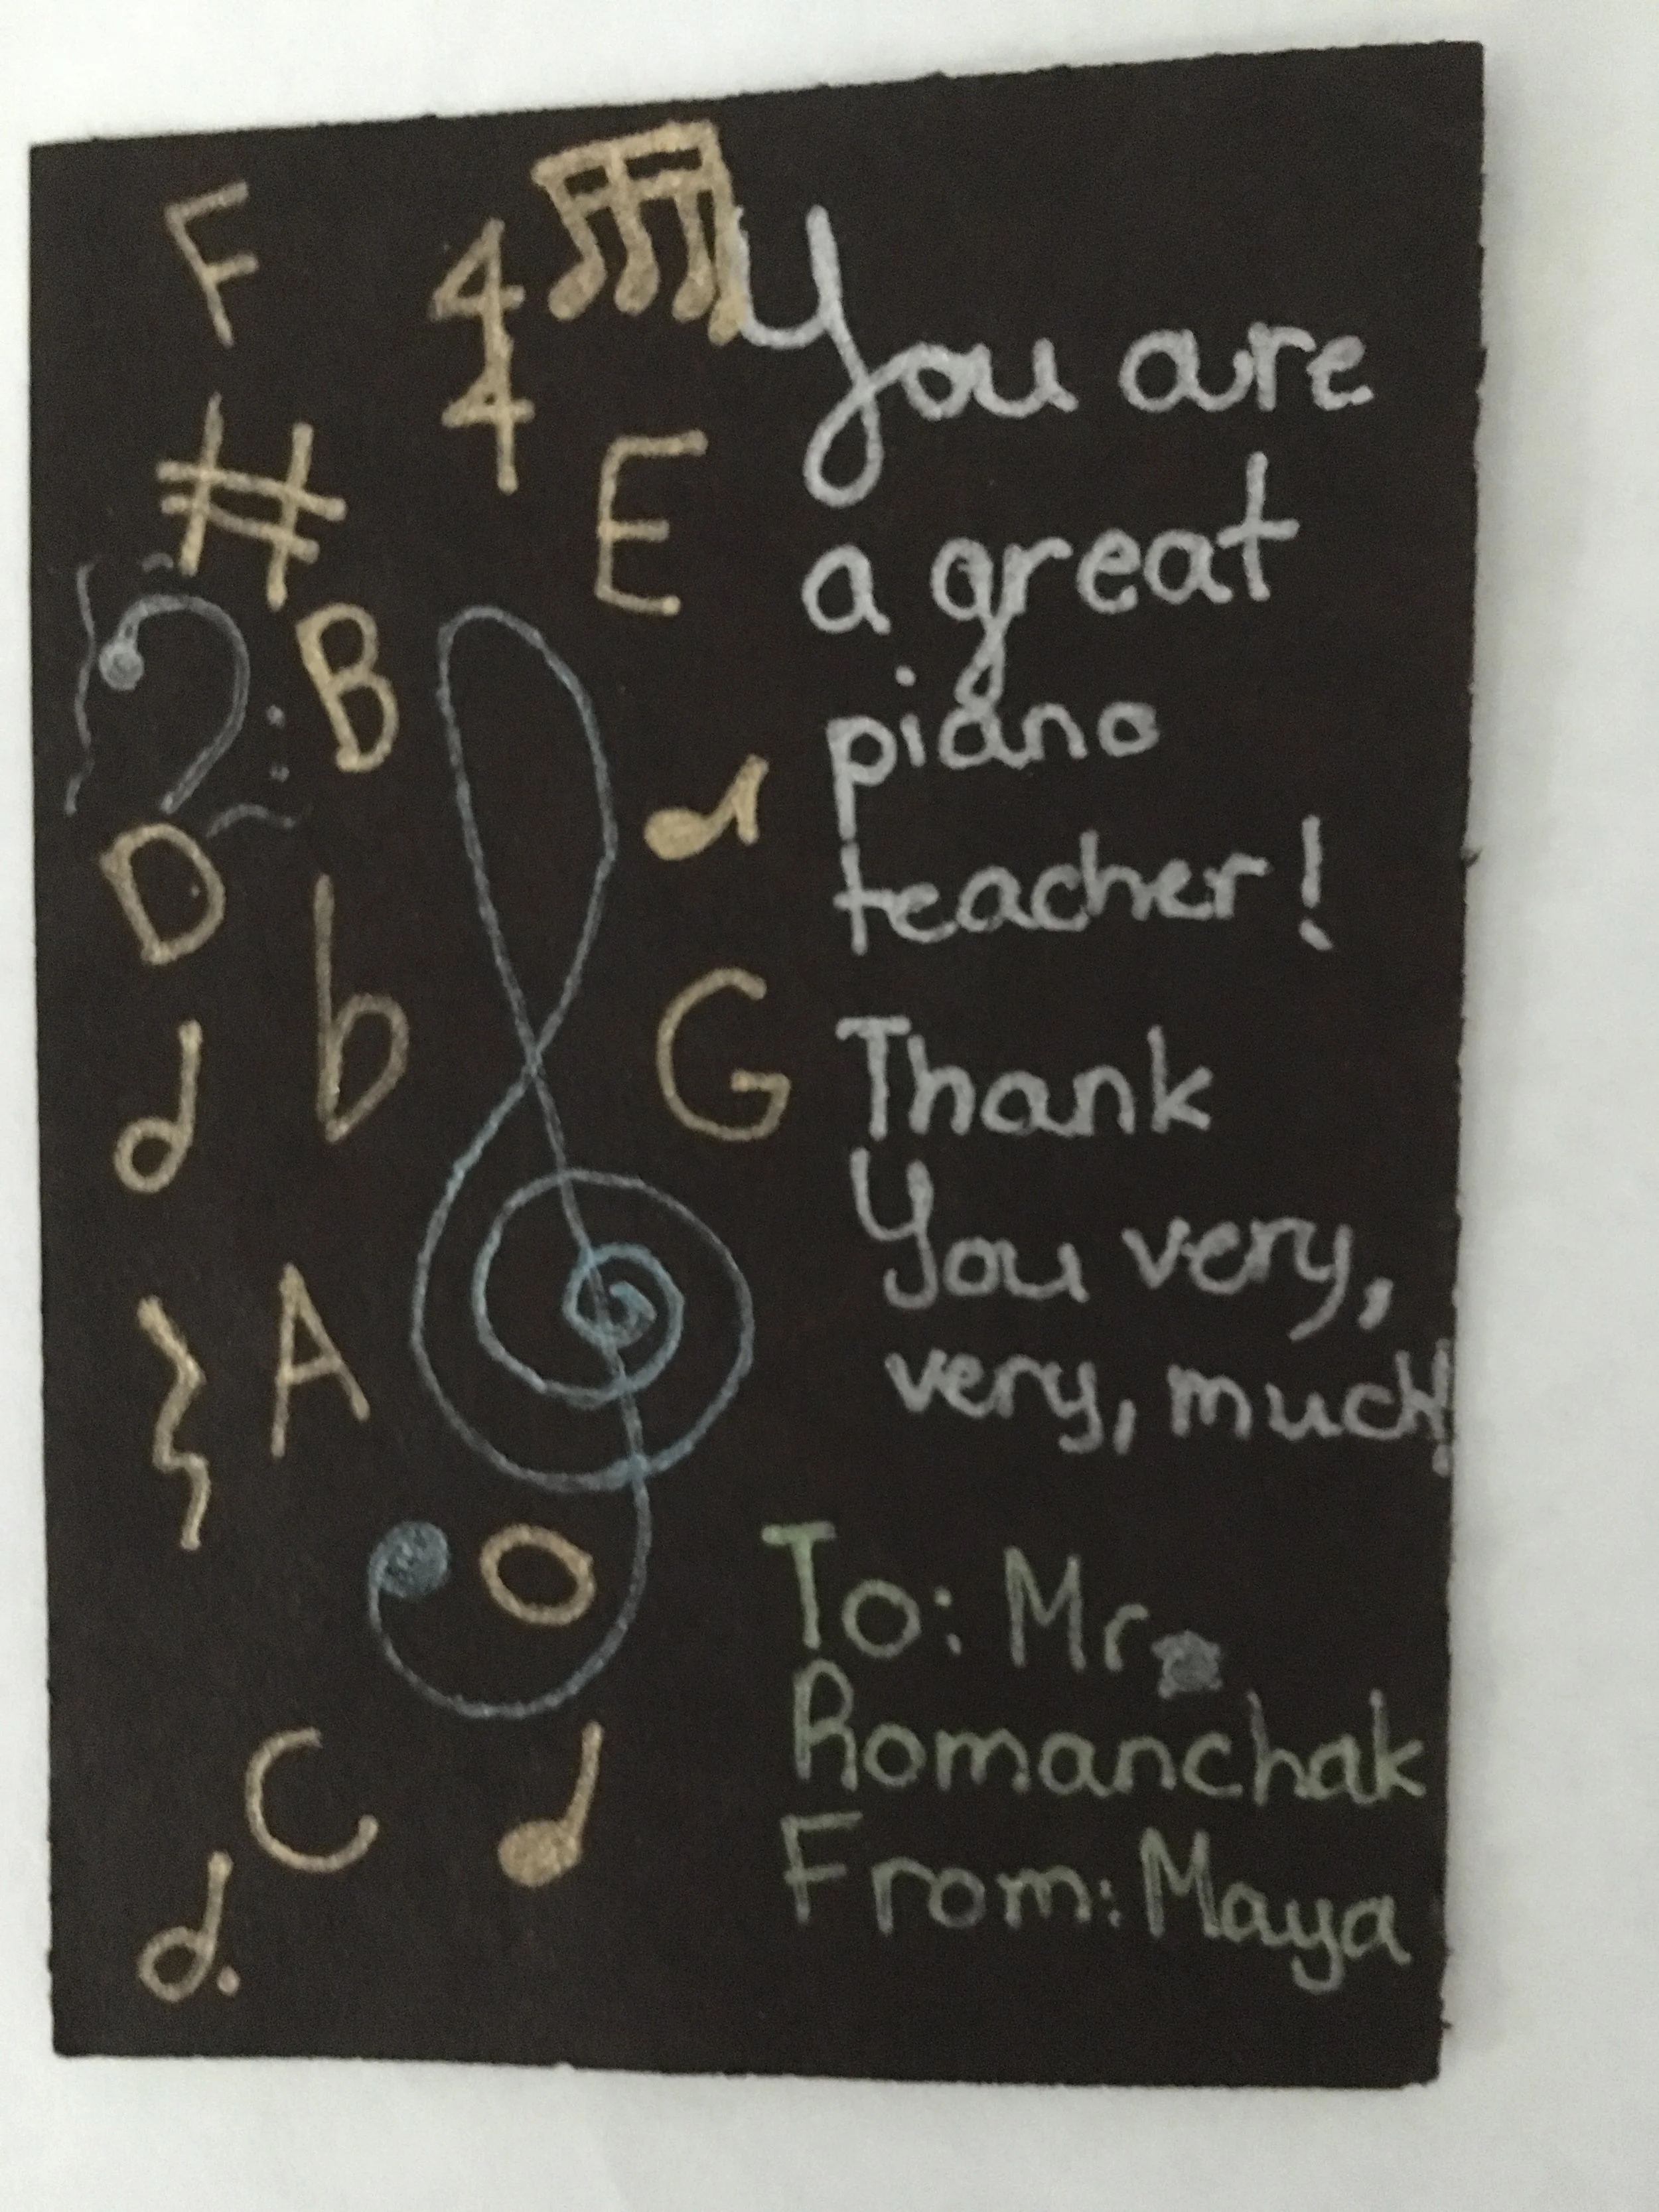 F
4
4
You are
#
E
a great
B
piano
D
teacher!
b
G
Thank
You very,
very, much!
A
To: Mr.
Romanchak
C
From: Maya